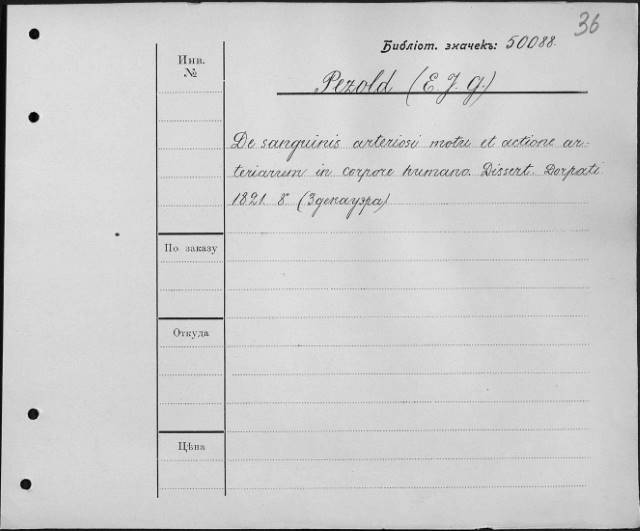 36
Библіот. значекъ: 50088.
Инв.
№
Pezold (E. J. G.)
De sanguinis arteriosi motu et actione ar-
teriarum in corpore humano. Dissert. Dorpati
1821. 8° (Здекауэра)
По заказу
Откуда
Цѣна